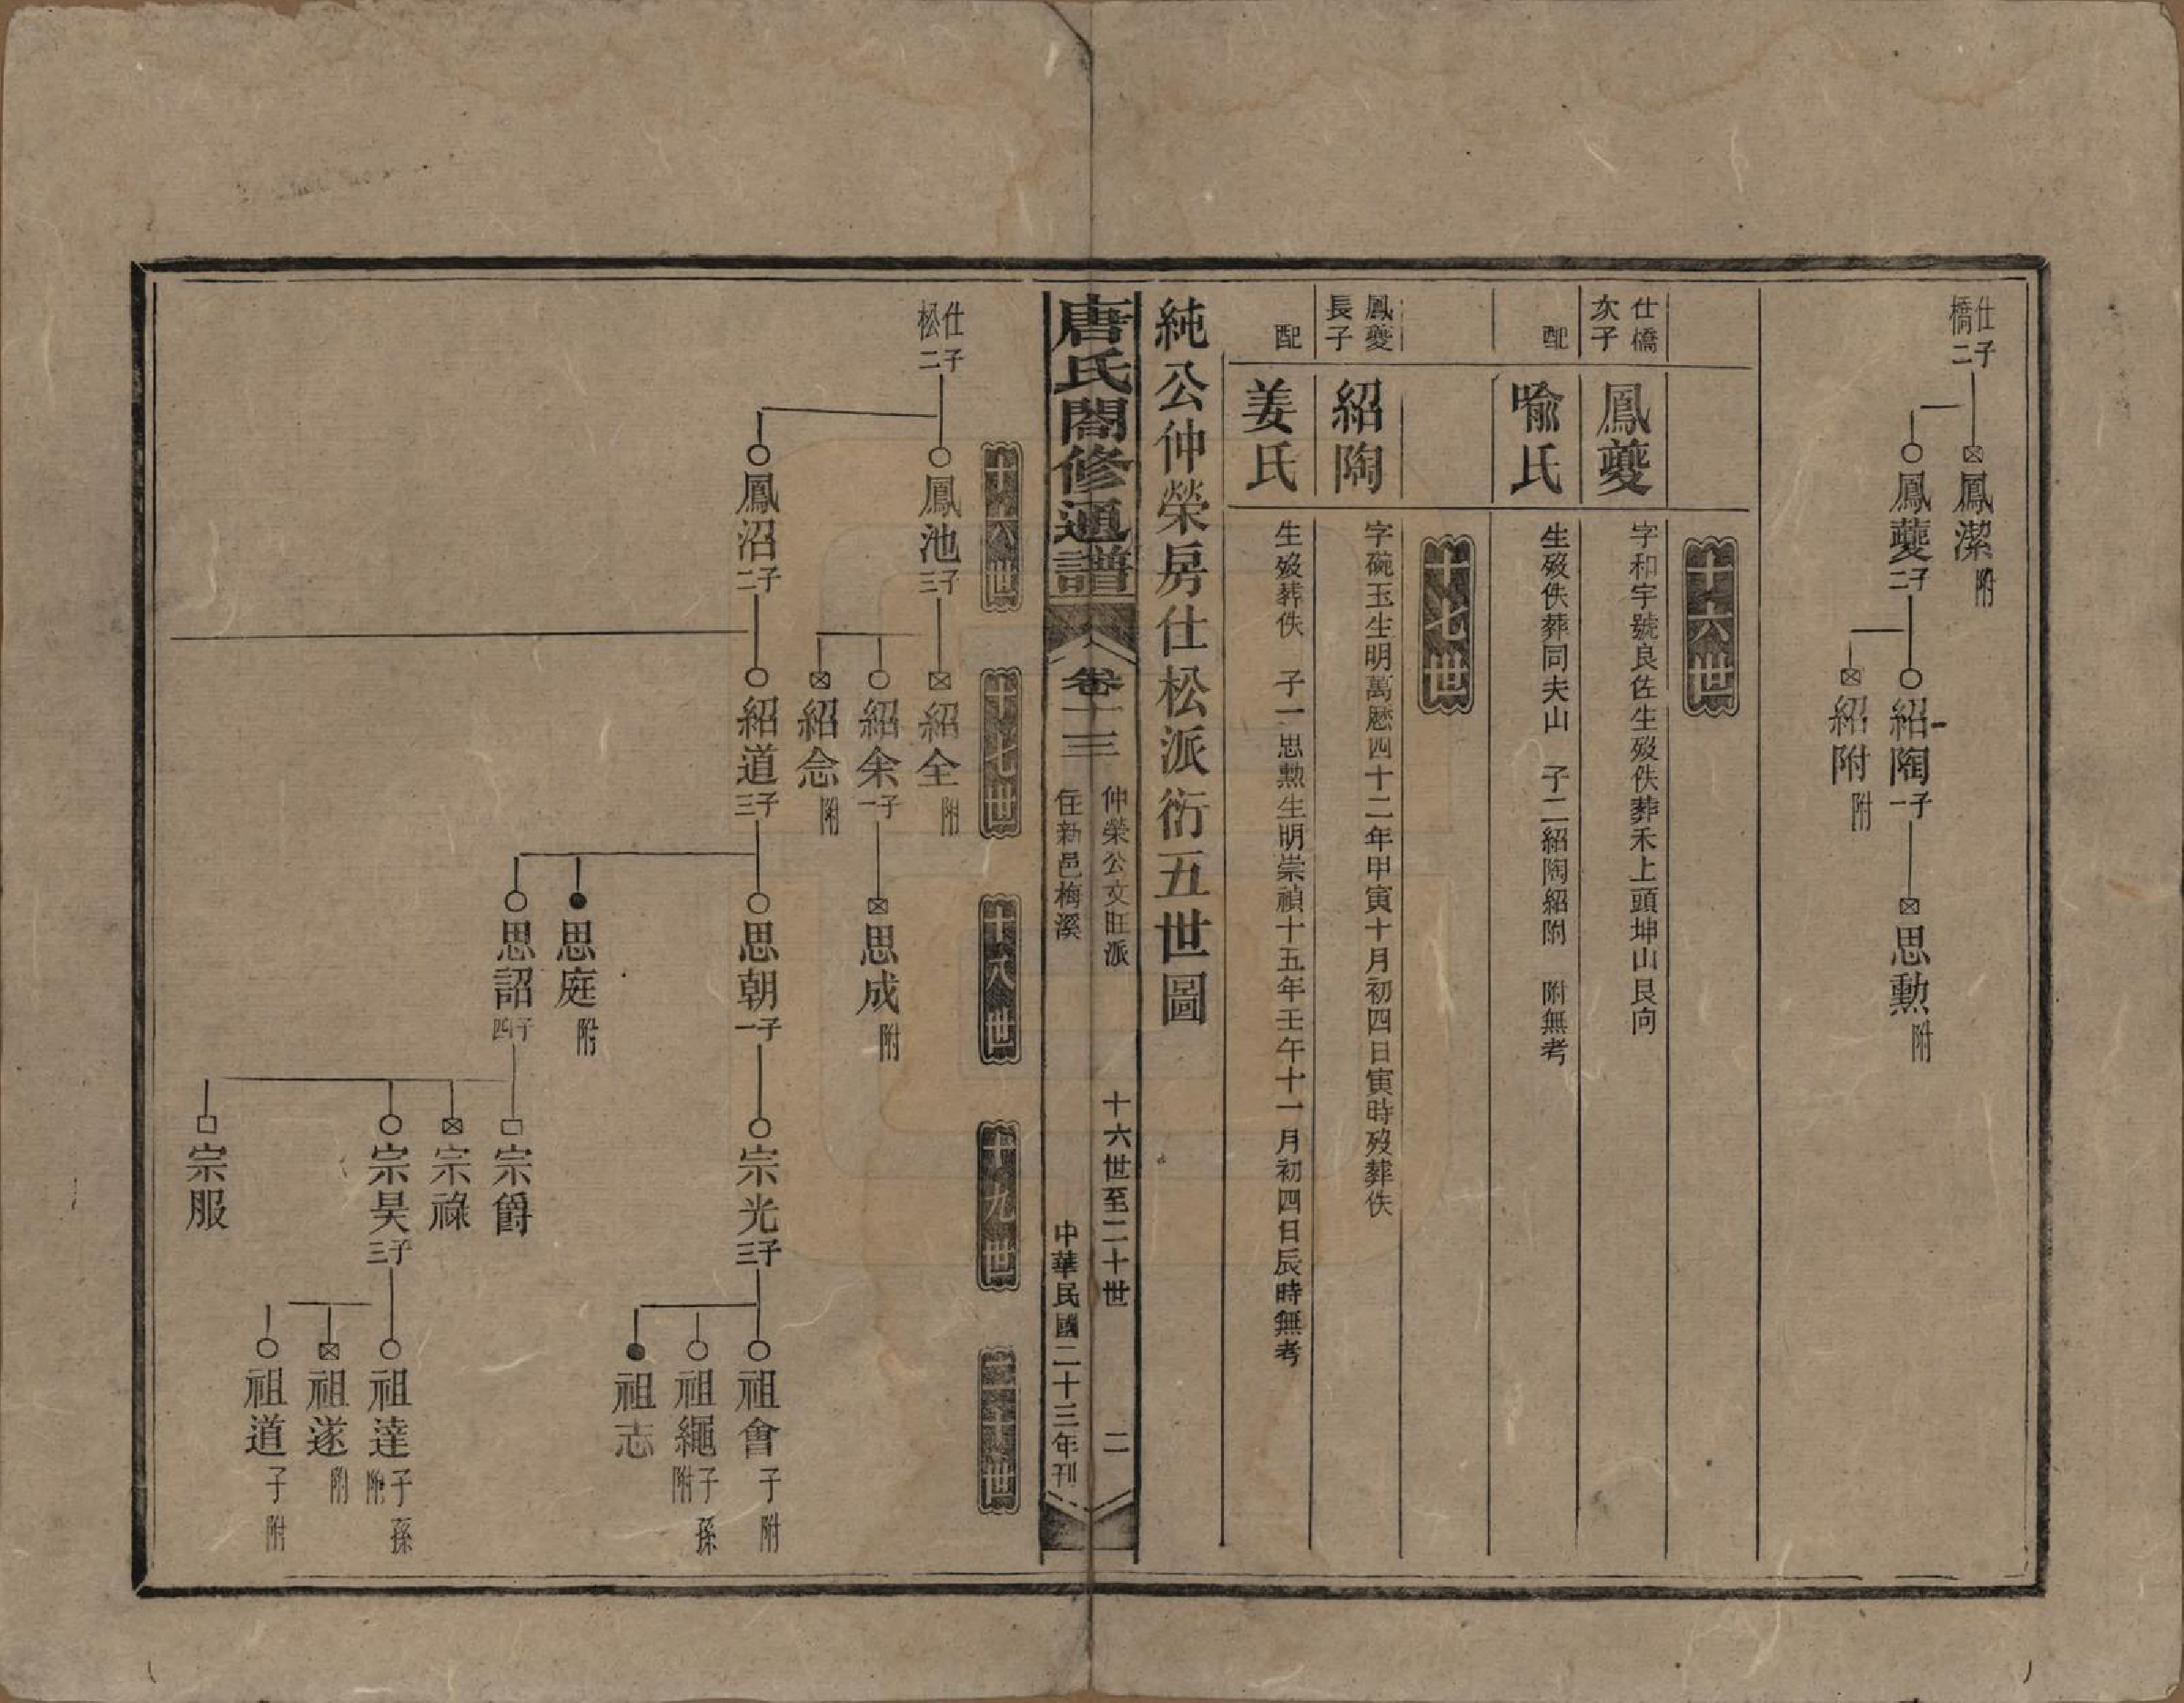 仕橋二子
鳳潔 附
鳳夔 二子
紹陶 一子
紹附 附
思勲 附
十六世
仕橋次子 鳳夔 字和宇號良佐生歿佚葬禾上頭坤山艮向
配 喻氏 生歿佚葬同夫山 子二紹陶紹附 附無考
十七世
鳳夔長子 紹陶 字碗玉生明萬歷四十二年甲寅十月初四日寅時歿葬佚
配 姜氏 生歿葬佚 子一思勲生明崇禎十五年壬午十一月初四日辰時無考
純公仲榮房仕松派衍五世圖
唐氏閤修通譜 卷十三
仲榮公文旺派 十六世至二十世 二
住新邑梅溪 中華民國二十三年刊
十六世
十七世
十八世
十九世
二十世
仕松二子
鳳池 三子
鳳沼 二子
紹全 附
紹余 一子
紹念 附
紹道 三子
思成 附
思朝 一子
思庭 附
思詔 四子
宗光 三子
宗爵
宗祿
宗昊 三子
宗服
祖會 子附
祖繩 子孫附
祖志
祖達 子孫附
祖遂 附
祖道 子附